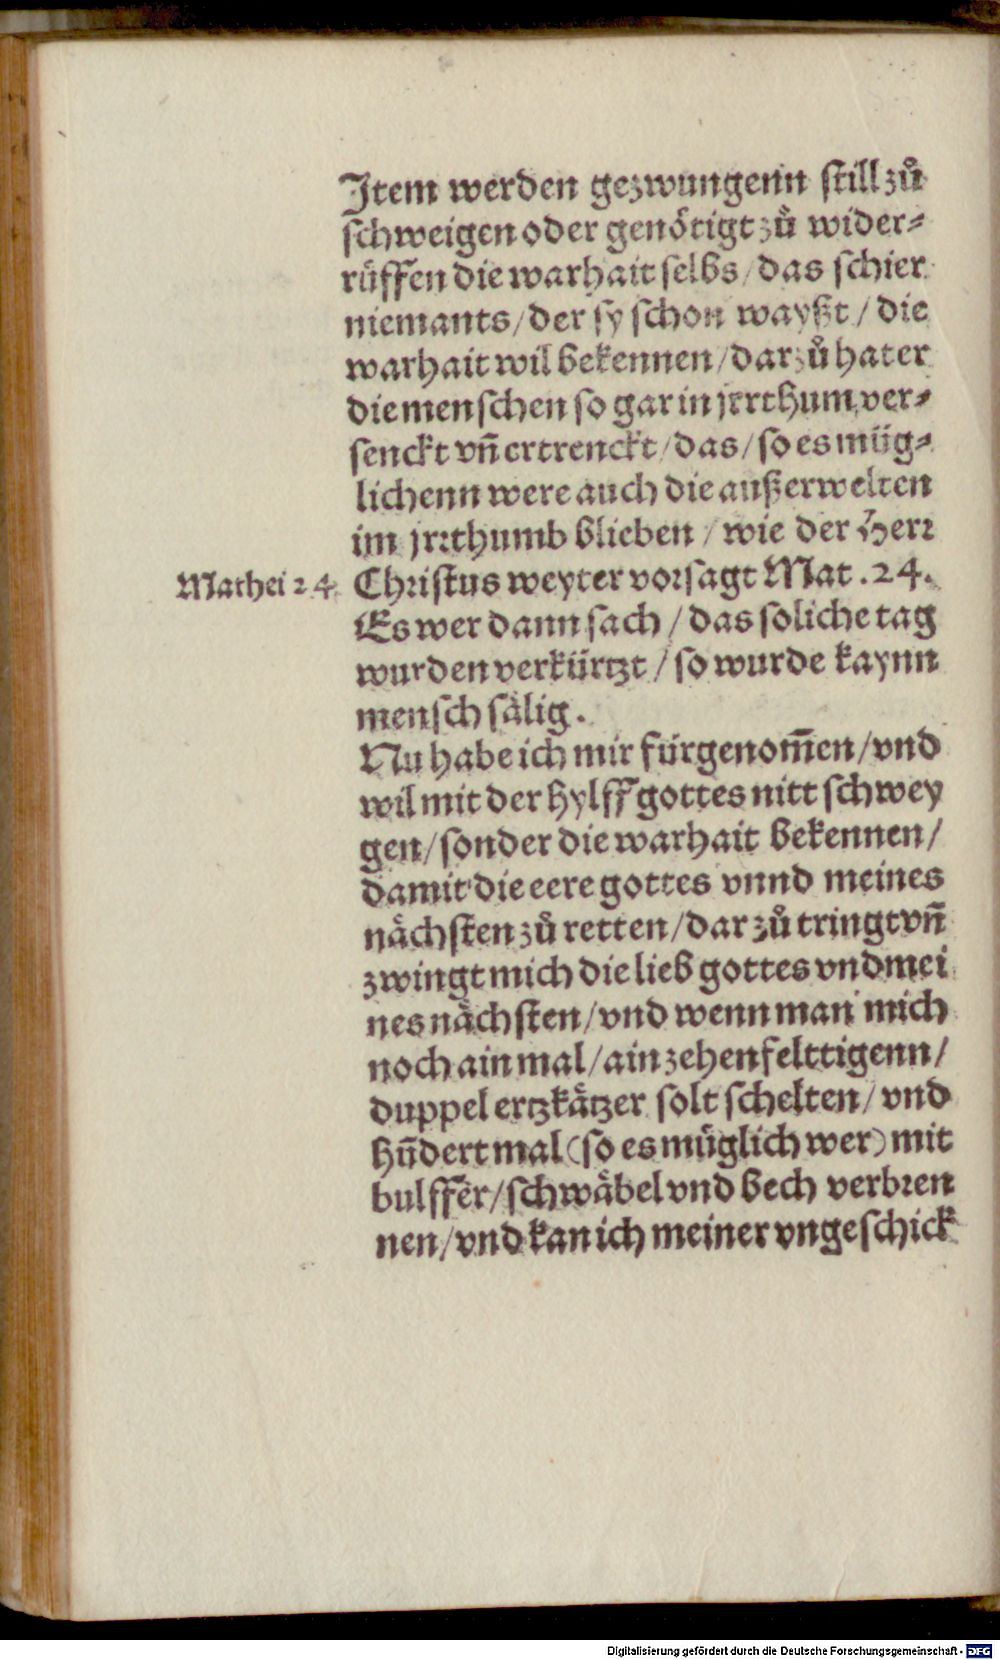 Jtem werden gezwungenn still zů
schweigen oder genötigt zů wider⸗
rüffen die warhait selbs/das schier
niemants/der sy schon wayßt/die
warhait wil bekennen/darzů hat er
die menschen so gar in jrrthum ver⸗
senckt vñ ertrenckt/das/so es müg⸗
lichenn were auch die außerwelten
im jrrthumb blieben/wie der Herr
Mathei 24. Christus weyter vorsagt Mat.24.
Es wer dann sach/das soliche tag
wurden verkürtzt/so wurde kaynn
mensch sålig.
Nu habe ich mir fürgenom̃en/vnd
wil mit der hylff gottes nitt schwey
gen/sonder die warhait bekennen/
damit die eere gottes vnnd meines
nåchsten zů retten/darzů tringt vñ
zwingt mich die lieb gottes vnd mei
nes nåchsten/vnd wenn man mich
noch ain mal/ain zehenfelttigenn/
duppel ertzkåtzer solt schelten/vnd
hũdert mal (so es müglich wer) mit
bulffer/schwåbel vnd bech verbren
nen/vnd kan ich meiner vngeschick
Digitalisierung gefördert durch die Deutsche Forschungsgemeinschaft - DFG